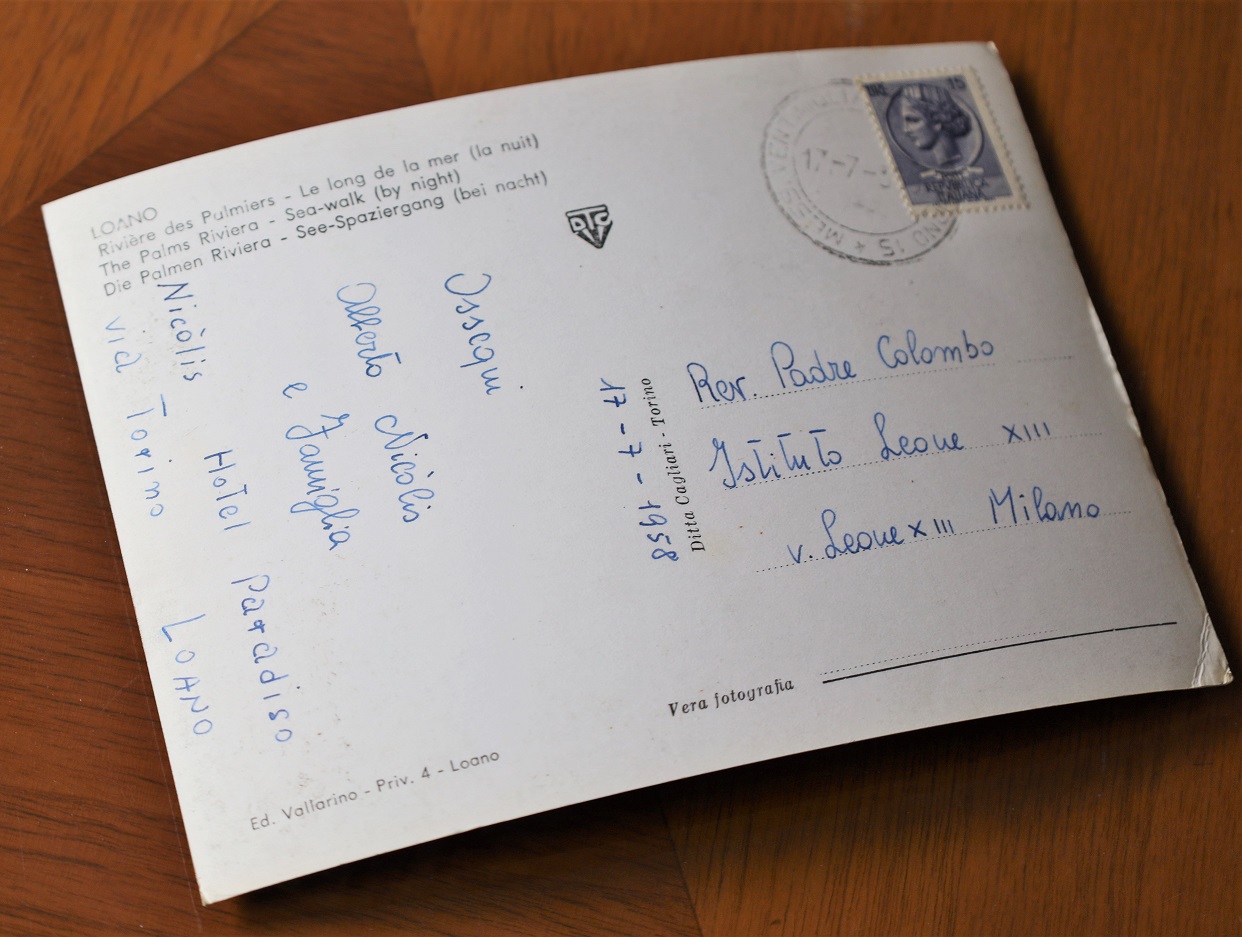 LOANO
Rivière des Pulmiers - Le long de la mer (la nuit)
The Palms Riviera - Sea-walk (by night)
Die Palmen Riviera - See-Spaziergang (bei nacht)
DTC
15
17-7-
Ossequi
Alberto Nicòlis
e Famiglia
Nicòlis Hotel Paradiso
via Torino LOANO
17-7-1958
Ditta Cagliari - Torino
Rev. Padre Colombo
Istituto Leone XIII
v. Leone XIII Milano
Vera fotografia
Ed. Vallarino - Priv. 4 - Loano